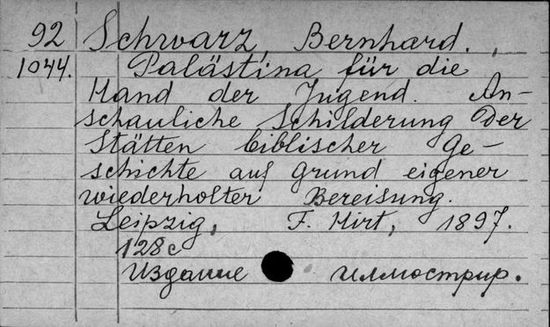 92 Schwarz, Bernhard.
1044. Palästina für die
Hand der Jugend. An-
schauliche Schilderung der
Stätten biblischer Ge-
schichte auf Grund eigener
wiederholter Bereisung.
Leipzig, F. Hirt, 1897.
128 с
Издание иллюстрир.